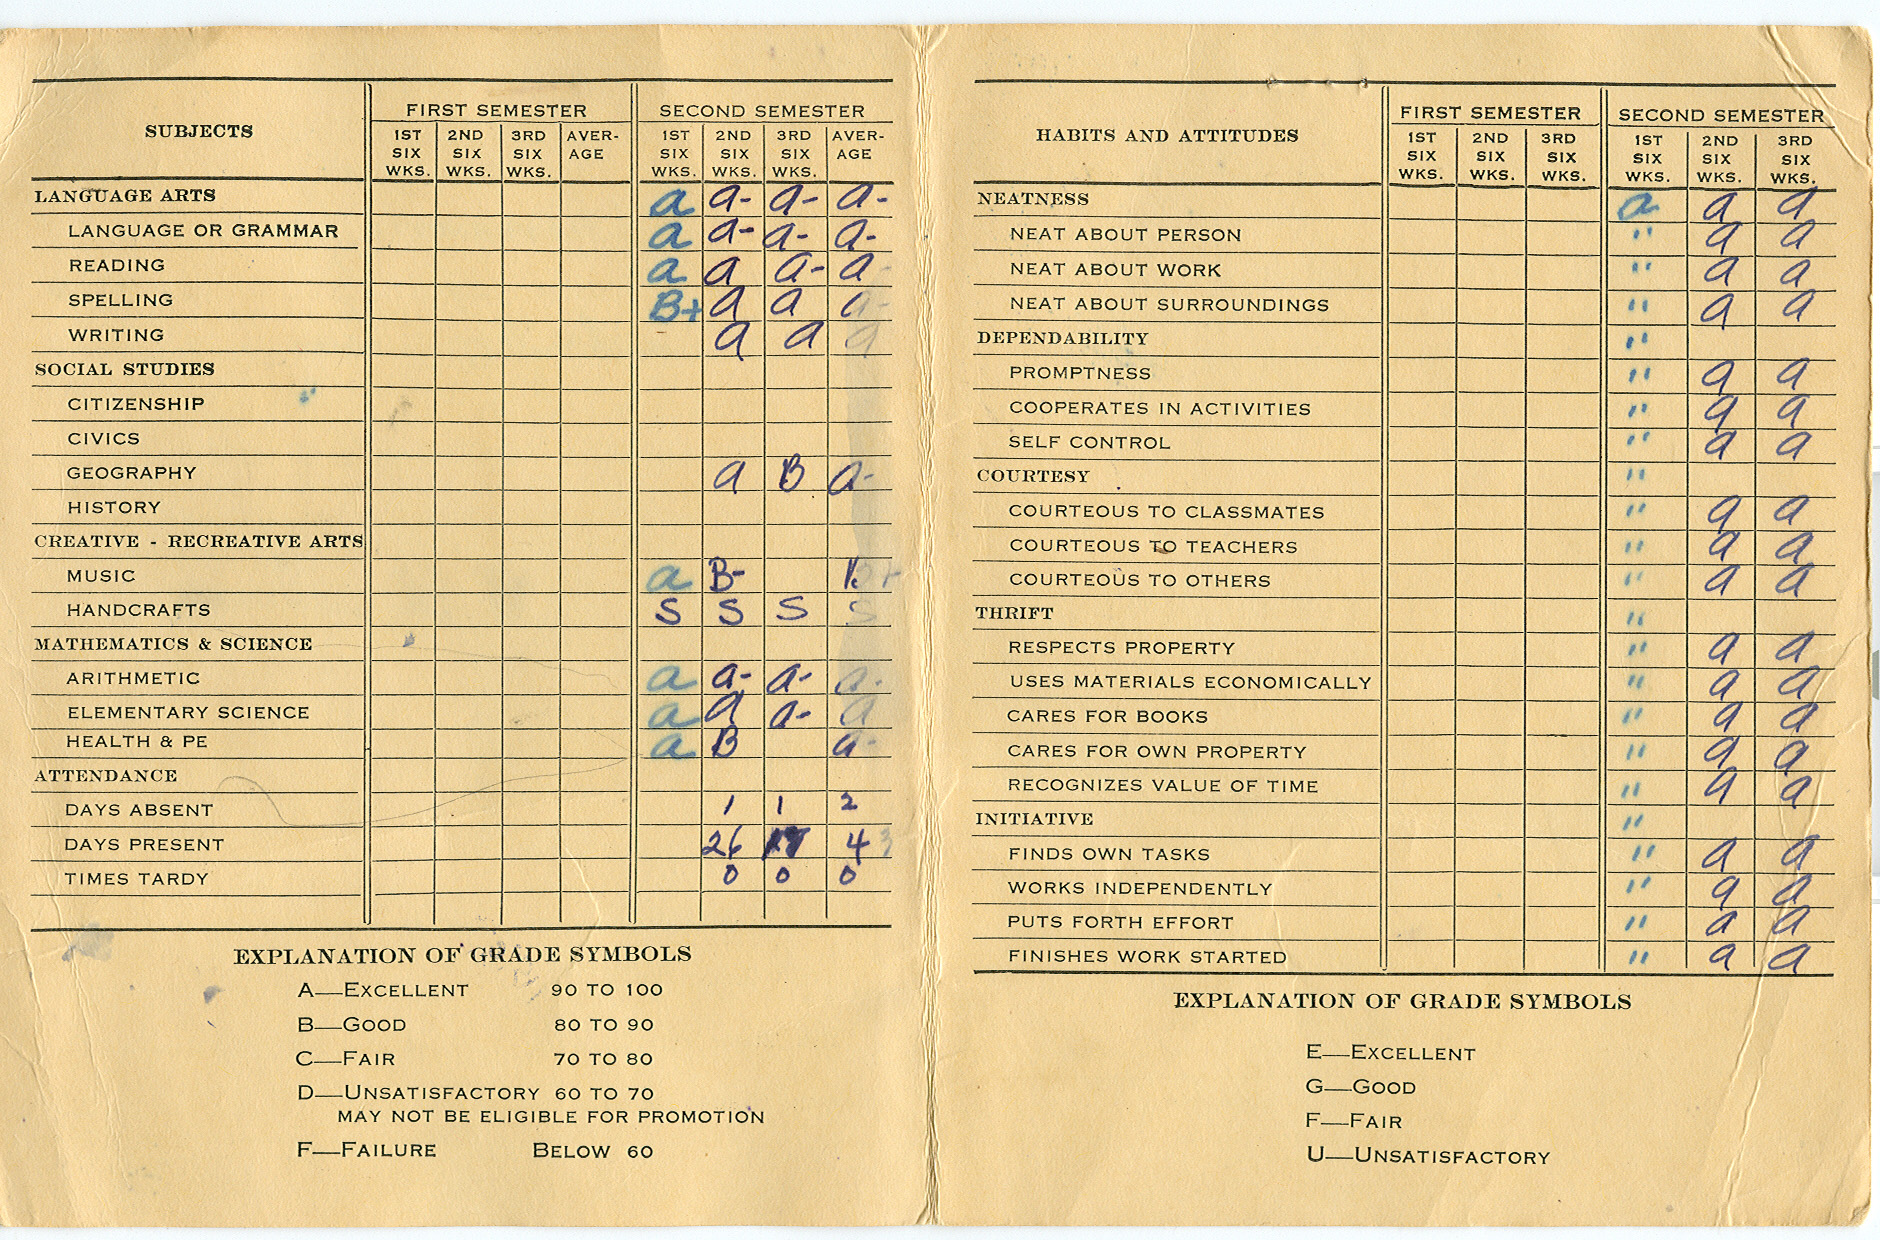 FIRST SEMESTER SECOND SEMESTER
SUBJECTS
1ST SIX WKS. 2ND SIX WKS. 3RD SIX WKS. AVER- AGE 1ST SIX WKS. 2ND SIX WKS. 3RD SIX WKS. AVER- AGE
LANGUAGE ARTS a a- a- a-
LANGUAGE OR GRAMMAR a a- a- a-
READING a a a- a-
SPELLING B+ a a a-
WRITING a a a
SOCIAL STUDIES
CITIZENSHIP
CIVICS
GEOGRAPHY a B a-
HISTORY
CREATIVE - RECREATIVE ARTS
MUSIC a B-
HANDCRAFTS S S S S
MATHEMATICS & SCIENCE
ARITHMETIC a a- a- a-
ELEMENTARY SCIENCE a a a- a
HEALTH & PE a B a-
ATTENDANCE
DAYS ABSENT 1 1 2
DAYS PRESENT 26 43
TIMES TARDY 0 0 0
EXPLANATION OF GRADE SYMBOLS
A—EXCELLENT 90 TO 100
B—GOOD 80 TO 90
C—FAIR 70 TO 80
D—UNSATISFACTORY 60 TO 70
MAY NOT BE ELIGIBLE FOR PROMOTION
F—FAILURE BELOW 60
FIRST SEMESTER SECOND SEMESTER
HABITS AND ATTITUDES
1ST SIX WKS. 2ND SIX WKS. 3RD SIX WKS. 1ST SIX WKS. 2ND SIX WKS. 3RD SIX WKS.
NEATNESS a a a
NEAT ABOUT PERSON " a a
NEAT ABOUT WORK " a a
NEAT ABOUT SURROUNDINGS " a a
DEPENDABILITY "
PROMPTNESS " a a
COOPERATES IN ACTIVITIES " a a
SELF CONTROL " a a
COURTESY "
COURTEOUS TO CLASSMATES " a a
COURTEOUS TO TEACHERS " a a
COURTEOUS TO OTHERS " a a
THRIFT "
RESPECTS PROPERTY " a a
USES MATERIALS ECONOMICALLY " a a
CARES FOR BOOKS " a a
CARES FOR OWN PROPERTY " a a
RECOGNIZES VALUE OF TIME " a a
INITIATIVE "
FINDS OWN TASKS " a a
WORKS INDEPENDENTLY " a a
PUTS FORTH EFFORT " a a
FINISHES WORK STARTED " a a
EXPLANATION OF GRADE SYMBOLS
E—EXCELLENT
G—GOOD
F—FAIR
U—UNSATISFACTORY